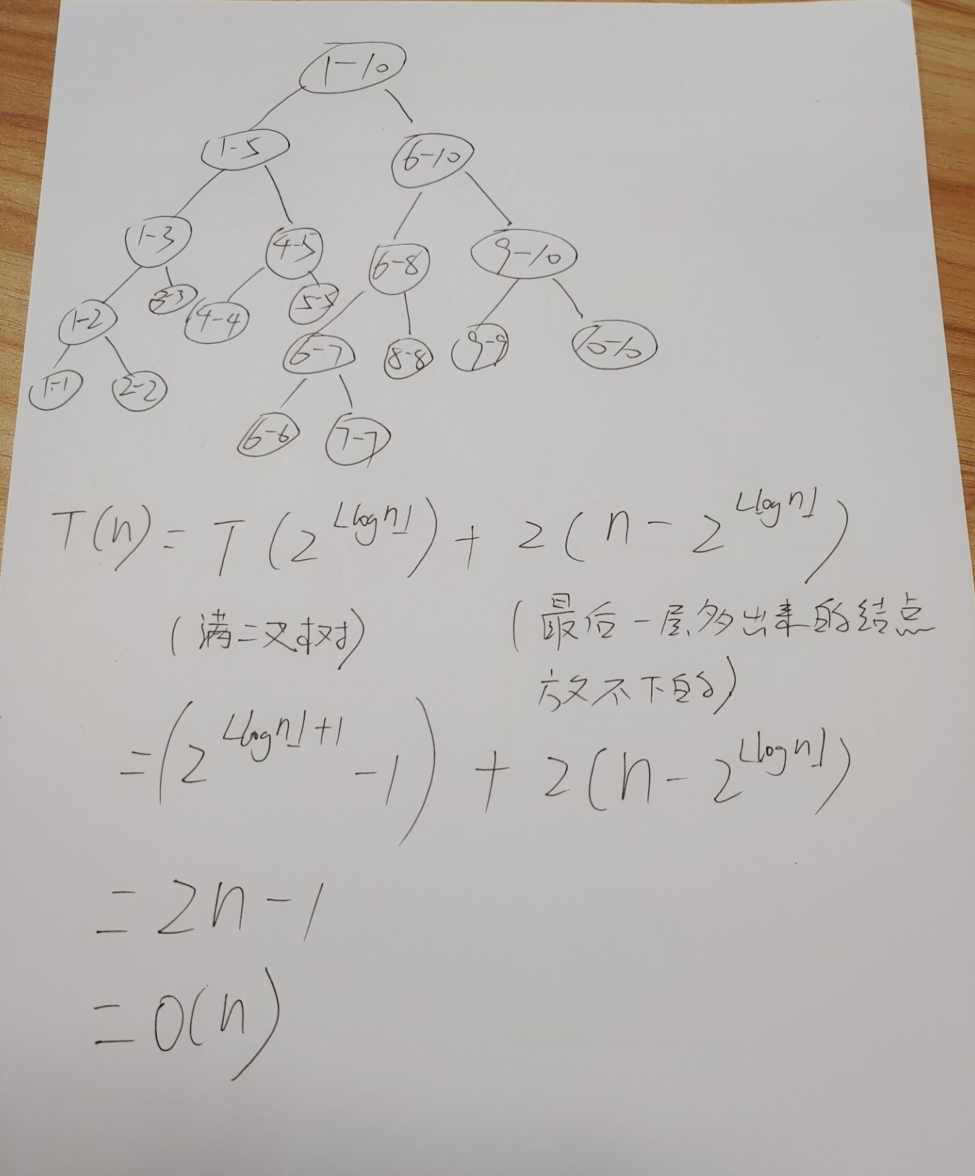 1-10
1-5 6-10
1-3 4-5 6-8 9-10
1-2 3-3 4-4 5-5 6-7 8-8 9-9 10-10
1-1 2-2 6-6 7-7
T(n) = T(2^⌊logn⌋) + 2(n - 2^⌊logn⌋)
(满二叉树) (最后一层多出来的结点
放不下的)
= (2^⌊logn⌋+1 - 1) + 2(n - 2^⌊logn⌋)
= 2n - 1
= O(n)